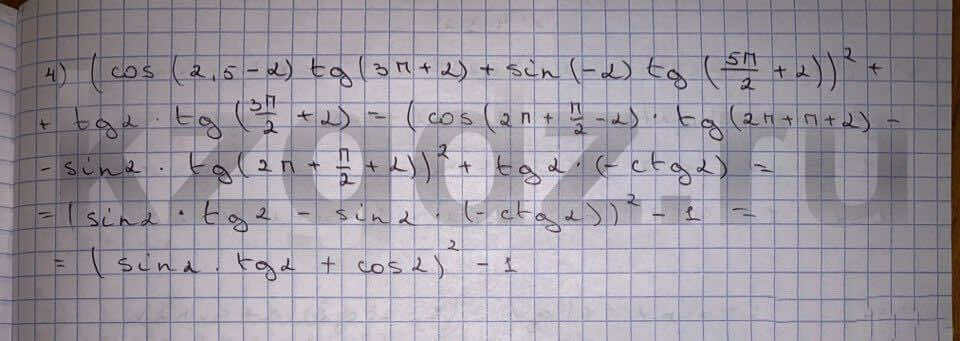 4) (cos (2,5-α) tg (3π+α) + sin (-α) tg (5π/2 + α))² +
+ tgα · tg (3π/2 + α) = (cos (2π + π/2 - α) · tg (2π+π+α) -
- sinα · tg (2π + π/2 + α))² + tgα · (-ctgα) =
= (sinα · tgα - sinα · (-ctgα))² - 1 =
= (sinα · tgα + cosα)² - 1